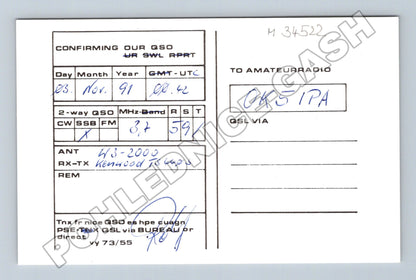 M 34522
CONFIRMING OUR QSO
UR SWL RPRT
Day Month Year GMT-UTC
03. Nov. 91
2-way QSO MHz Band R S T
CW SSB FM
X 3,7 59
ANT W3-2000
RX-TX Kenwood
REM
Tnx fr nice QSO es hpe cuagn
PSE-TNX QSL via BUREAU or
direct vy 73/55
TO AMATEURRADIO
OK5IPA
QSL VIA
POHLEDNICE-GASH